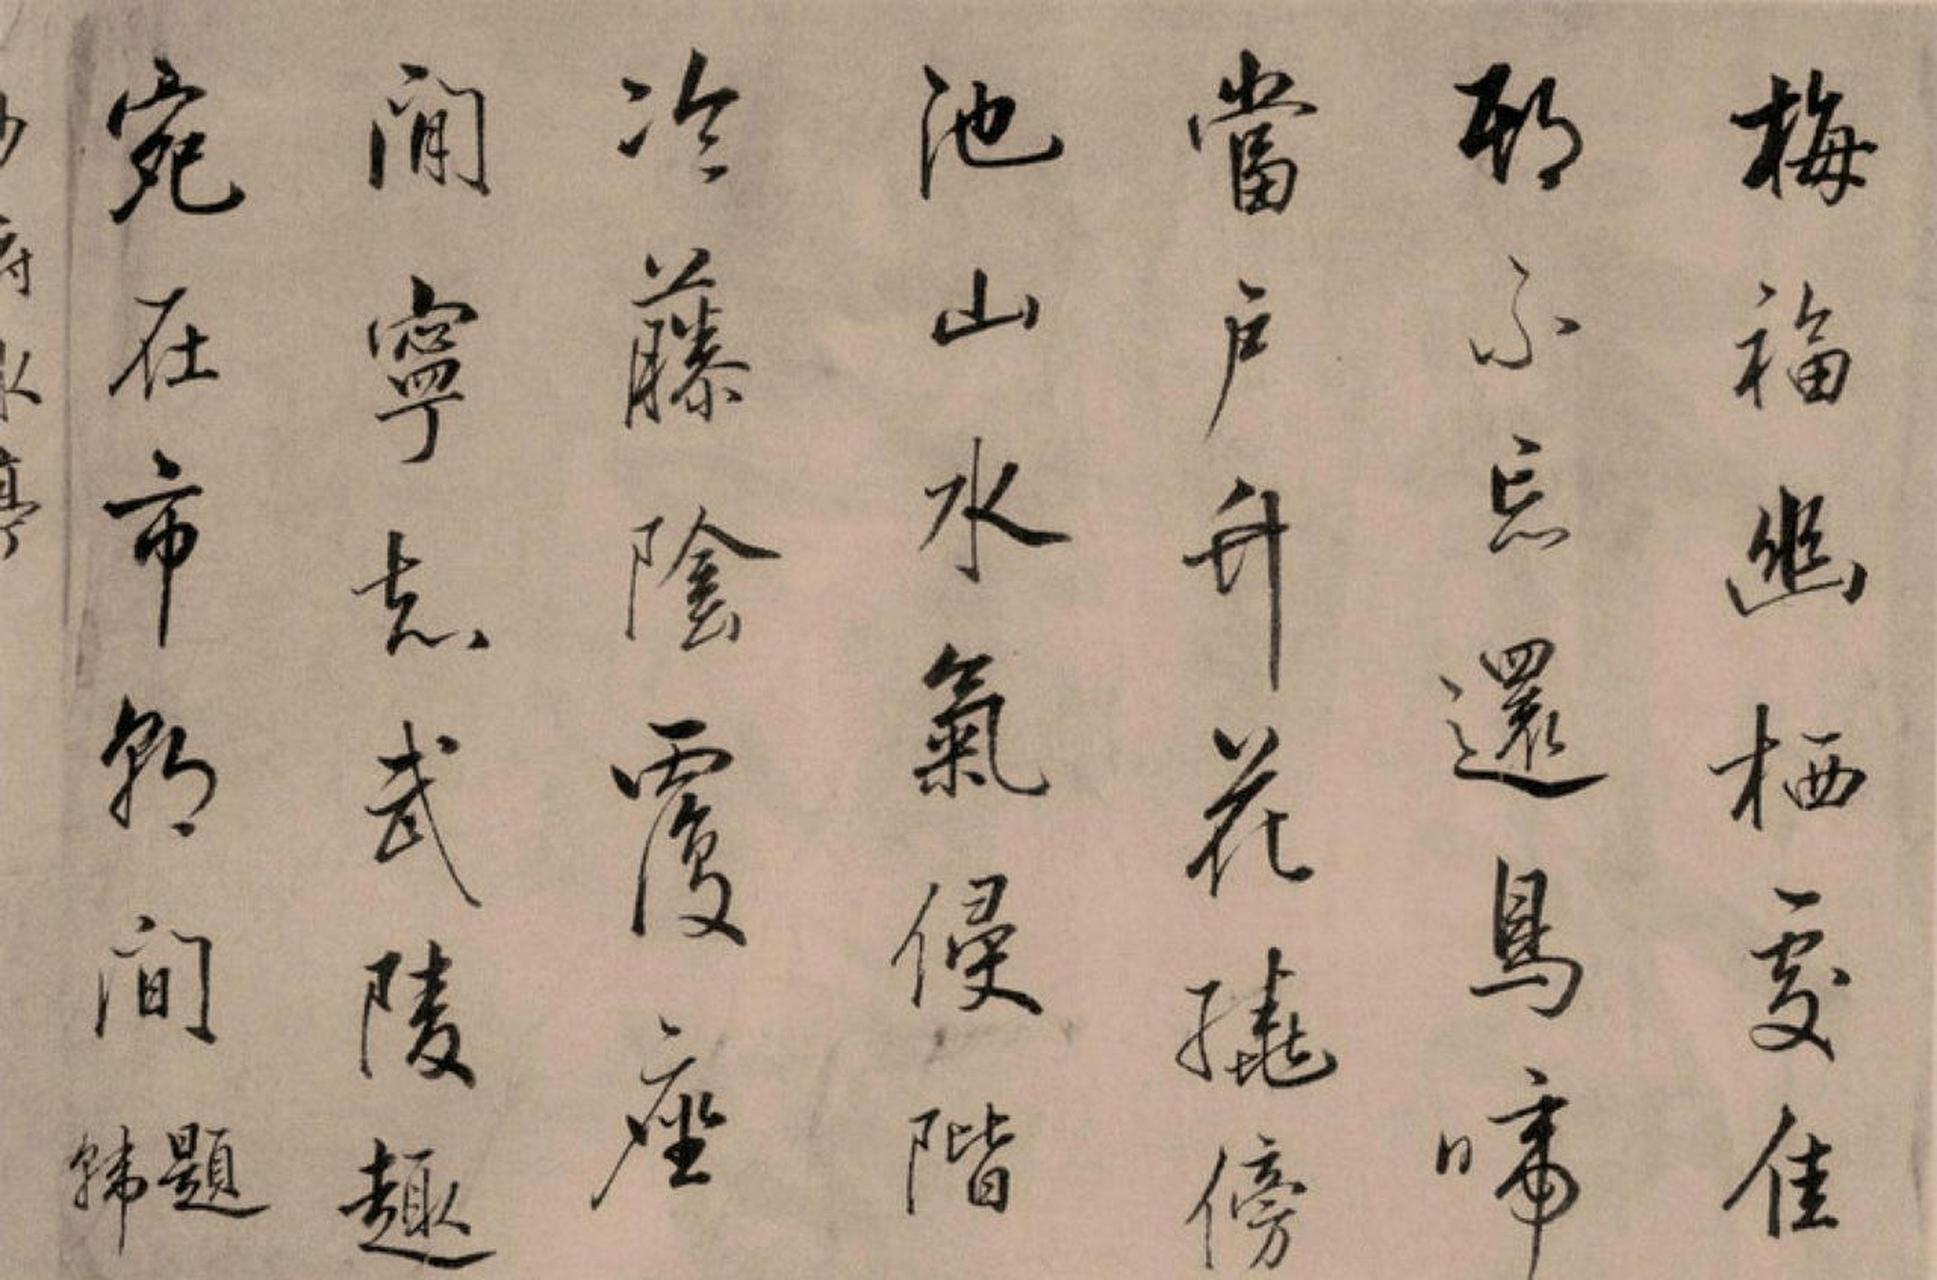 梅福幽栖處佳
期不忘還鳥啼
當戶竹花繞傍
池山水氣侵階
冷藤陰覆座
閒寧志武陵趣
宛在市朝間
題
韓
少府水亭